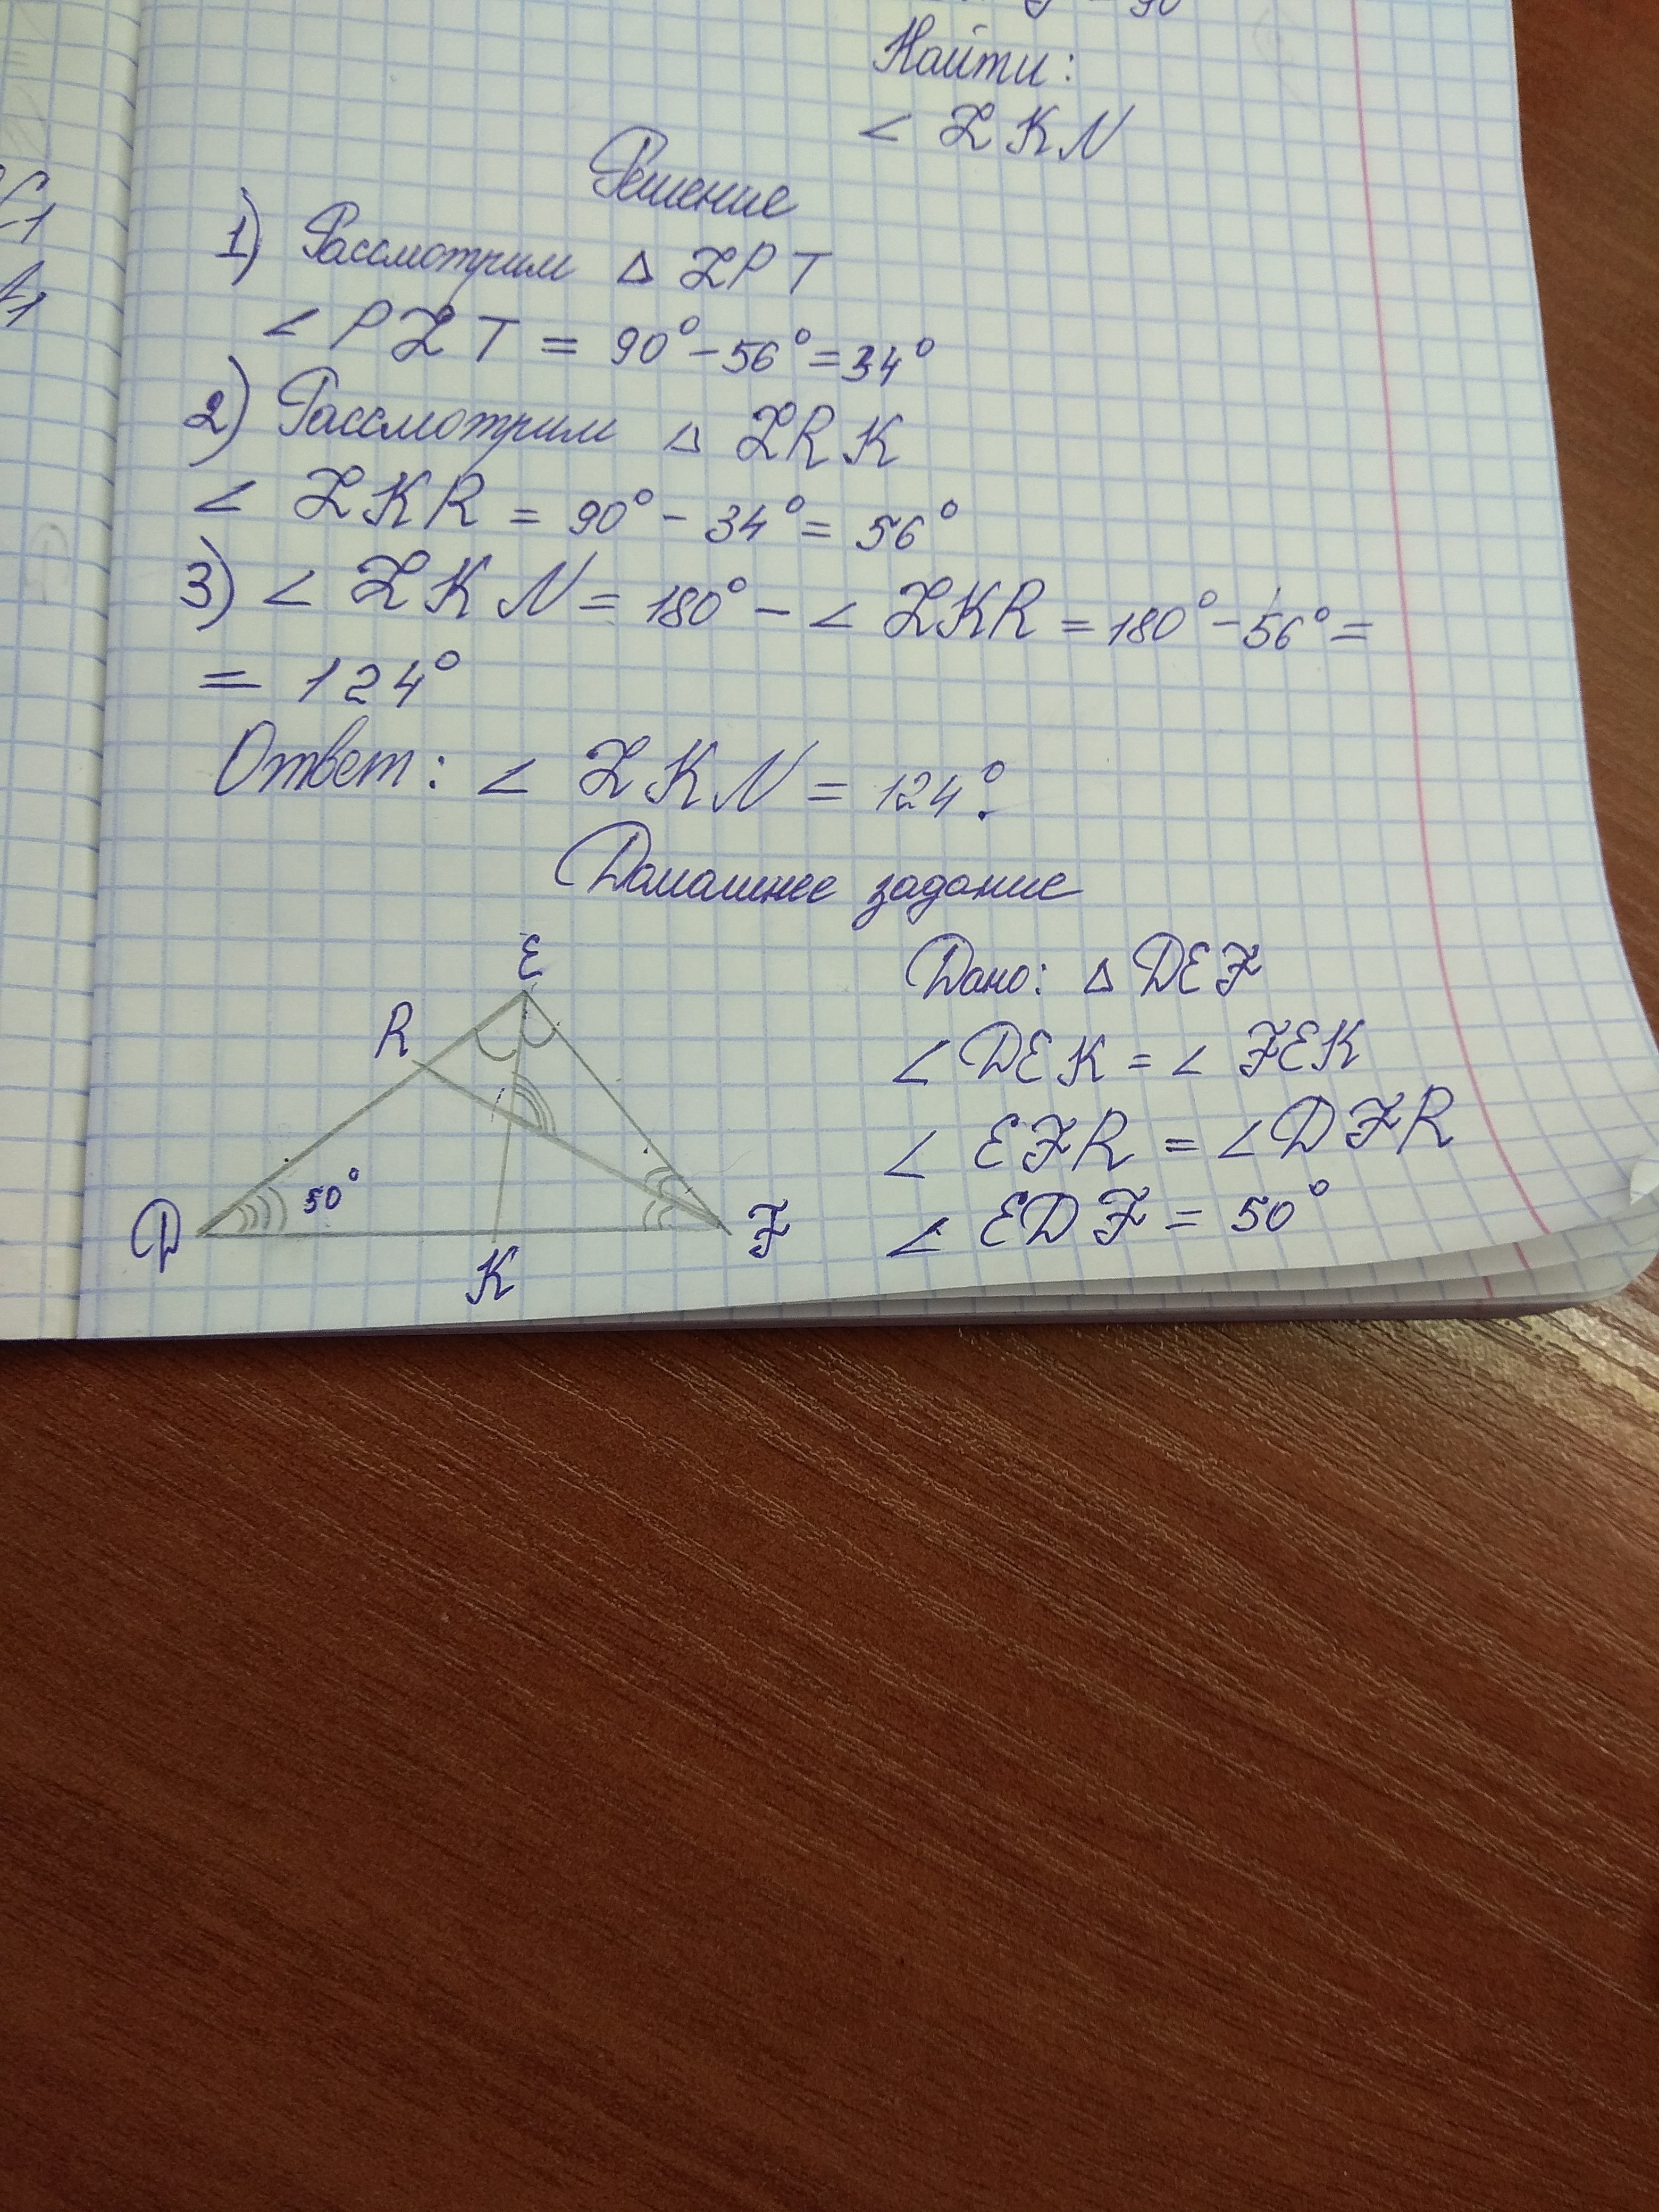 Найти:
∠ ZKN
Решение
1) Рассмотрим △ ZPT
∠ PZT = 90° - 56° = 34°
2) Рассмотрим △ ZRK
∠ ZKR = 90° - 34° = 56°
3) ∠ ZKN = 180° - ∠ ZKR = 180° - 56° =
= 124°
Ответ: ∠ ZKN = 124°.
Домашнее задание
E
R
D
50°
K
F
Дано: △ DEF
∠ DEK = ∠ FEK
∠ EFR = ∠ DFR
∠ EDF = 50°